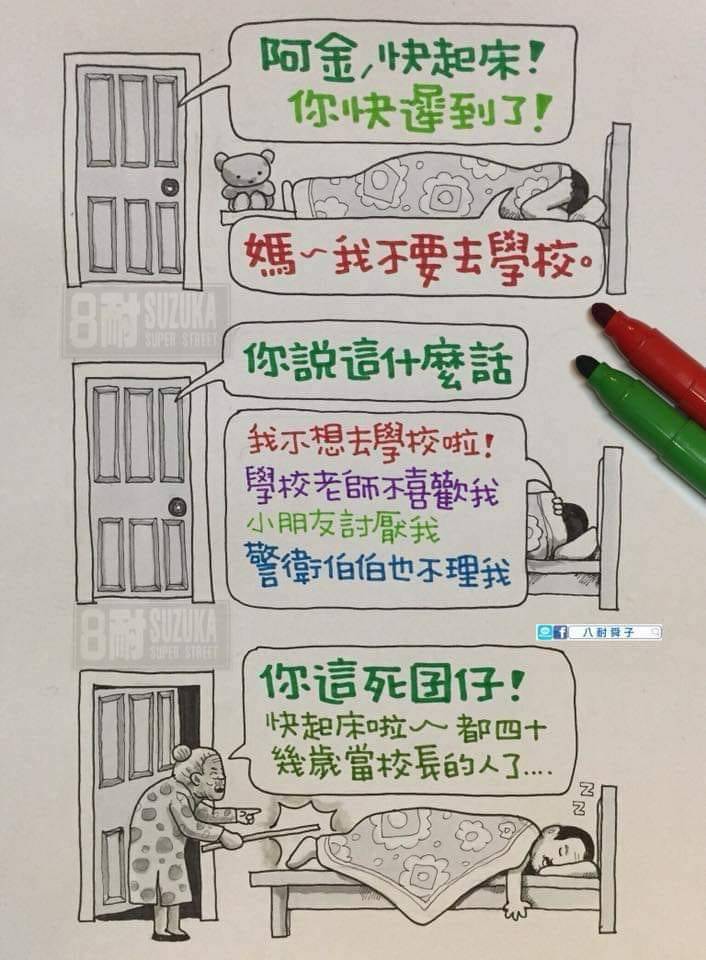 阿金,快起床!
你快遲到了!
媽~我不要去學校。
8耐 SUZUKA
SUPER STREET
你說這什麼話
我不想去學校啦!
學校老師不喜歡我
小朋友討厭我
警衛伯伯也不理我
8耐 SUZUKA
SUPER STREET
f 八耐舜子
你這死囝仔!
快起床啦~~都四十
幾歲當校長的人了....
z
z